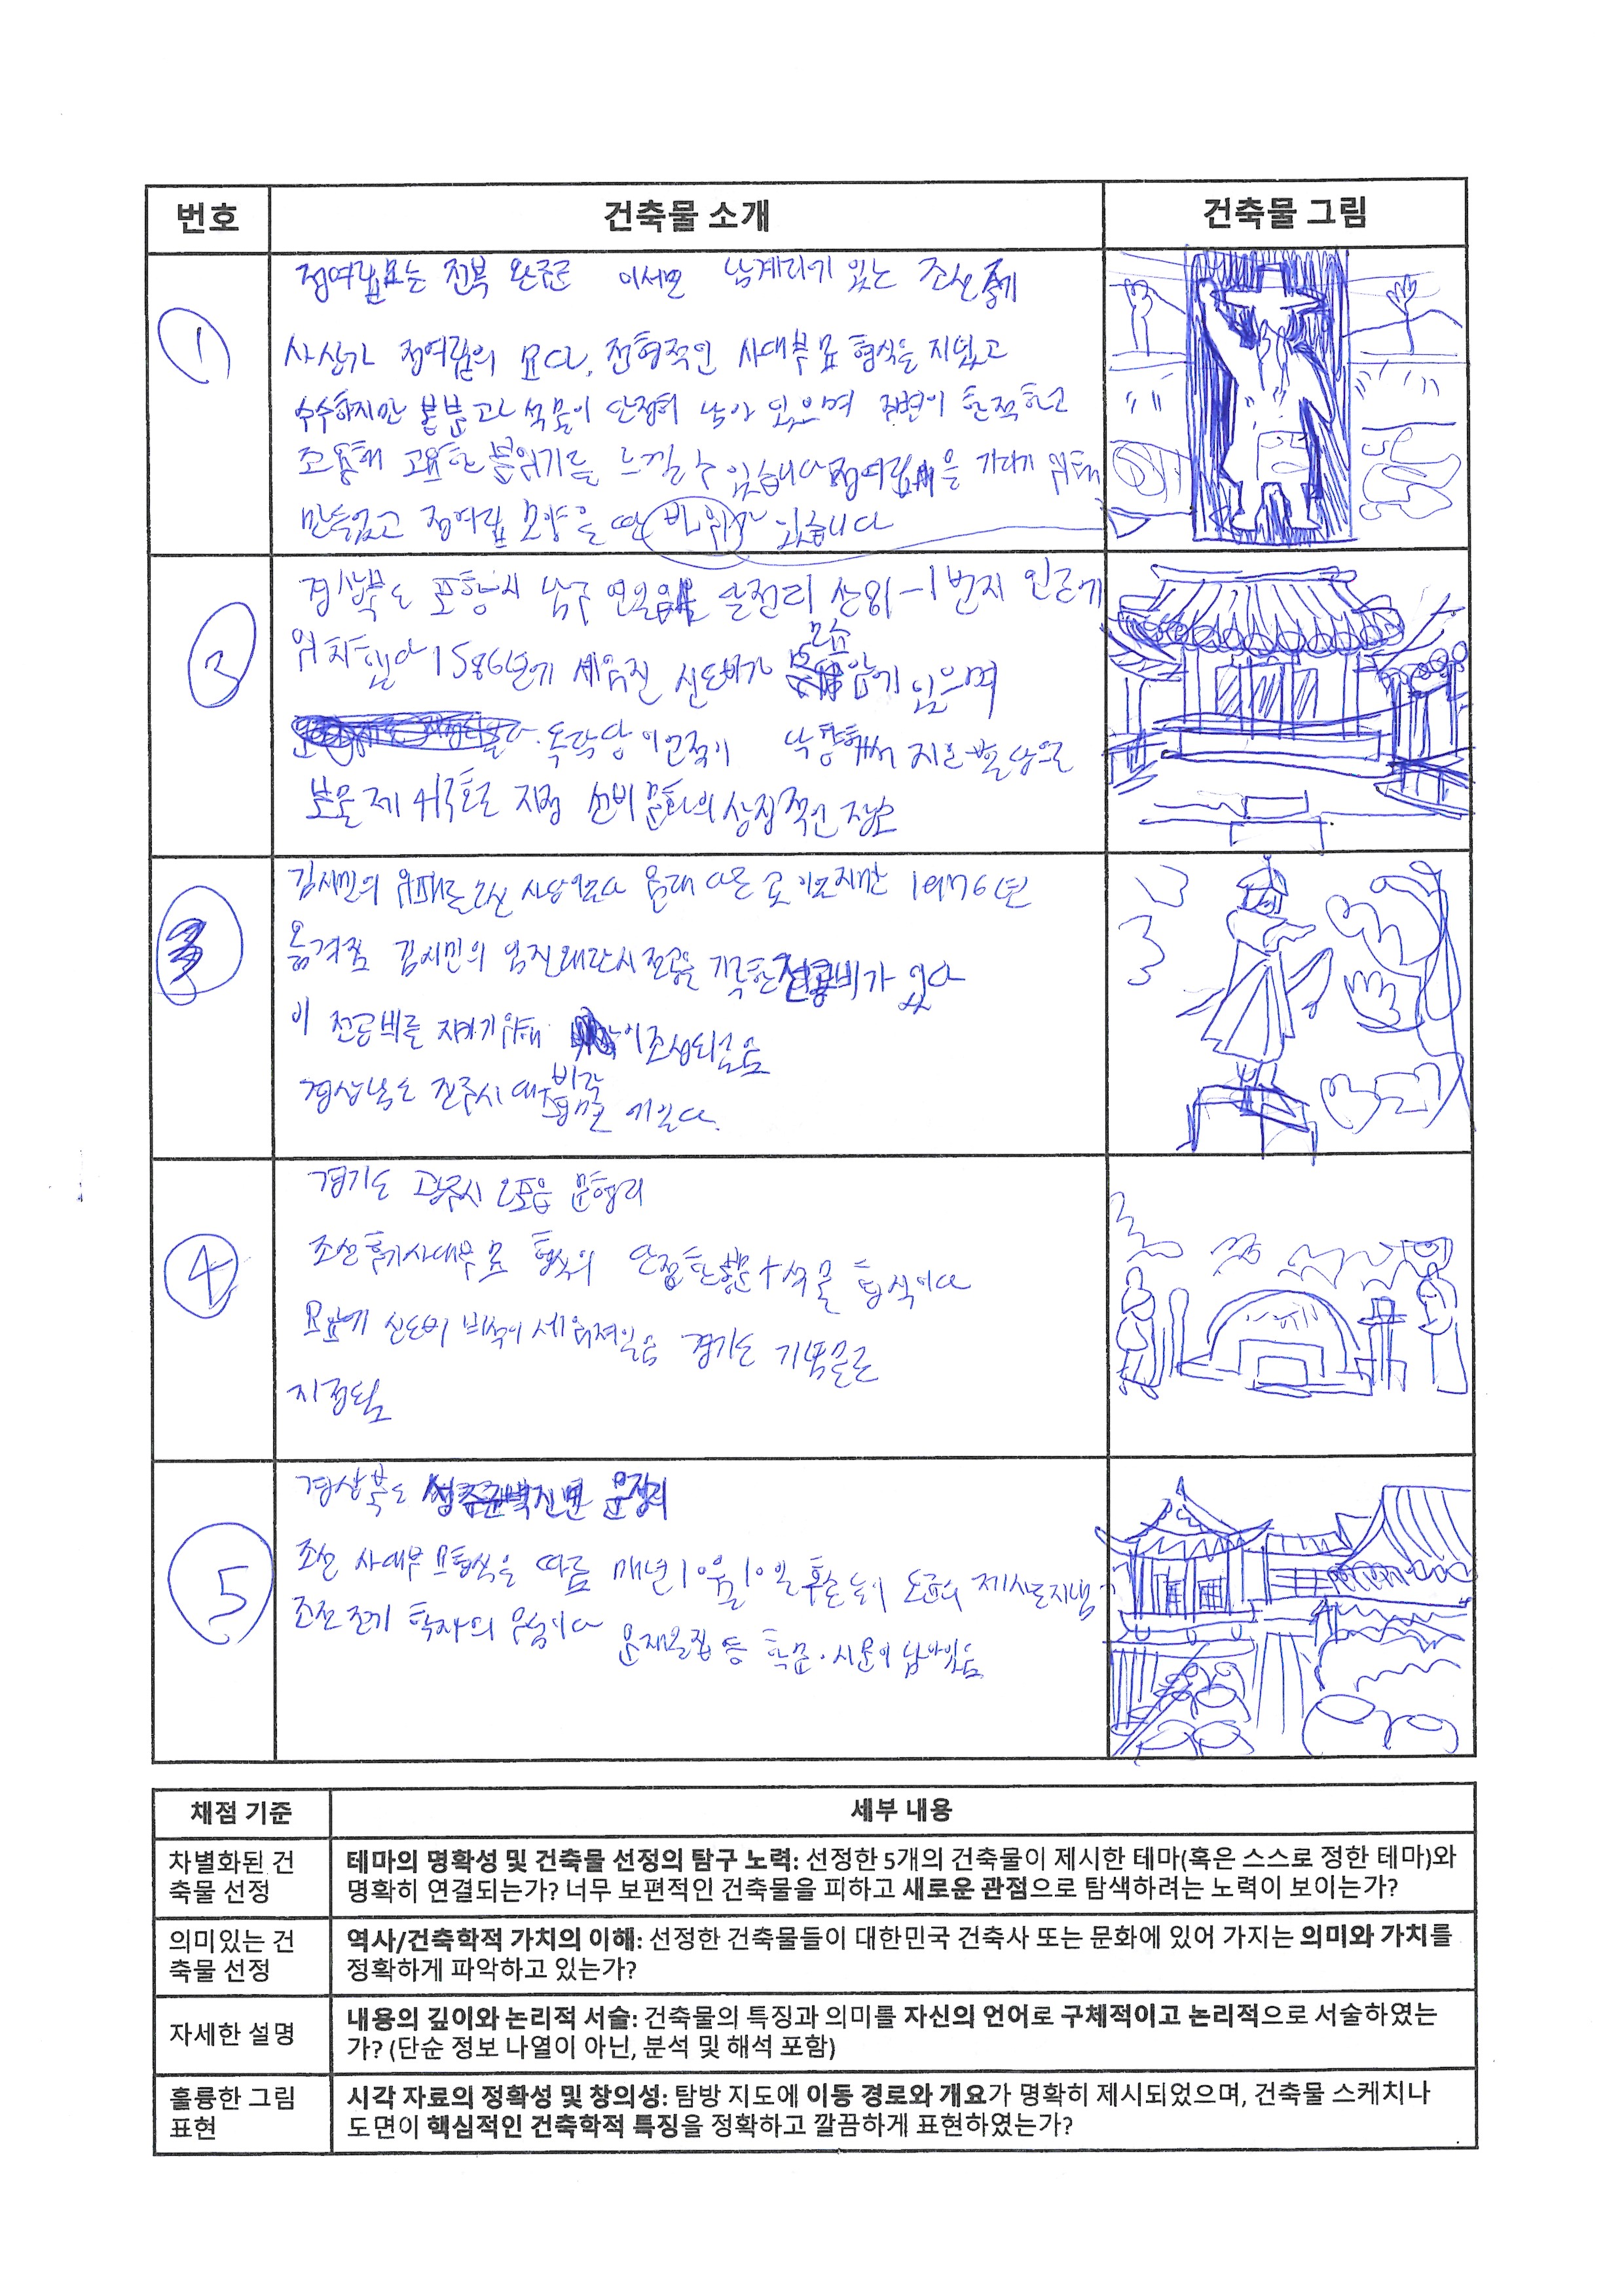 번호 건축물 소개 건축물 그림
① 정여립묘는 전북 완주군 이서면 남계리에 있는 조선 중기
사상가 정여립의 묘다. 전형적인 사대부 묘 형식을 지녔고
수수하지만 봉분과 석물이 단정히 남아 있으며 주변이 한적하고
조용해 고요한 분위기를 느낄 수 있습니다 정여립을 기리기 위해
만들었고 정여립 모양을 딴 바위가 있습니다
③ 경상북도 포항시 남구 연일읍 달전리 산81-1번지 인근에
위치했다 1586년에 세워진 신도비가 묘소 앞에 있으며
독락당 이언적이 낙향해서 지은 별당으로
보물 제413호로 지정 선비문화의 상징적인 장소
김시민의 위패를 모신 사당이었다 원래 다른 곳이었지만 1976년
옮겨짐 김시민의 임진왜란시 전공을 기록한 전공비가 있다
이 전공비를 지키기위해 이 조성되었음
비각
경상남도 진주시 에 있다.
④ 경기도 광주시 오포읍 문형리
조선후기사대부 묘 형식의 단정한 봉분+석물 형식이다
묘앞에 신도비 비석이 세워져있음 경기도 기념물로
지정됨
⑤ 경상북도 성주군벽진면
조선 사대부 묘형식을 따름 매년 10월 10일 후손들이 제사를지냄
조선 초기 학자의 등 학문·시문이 남아있음
채점 기준 세부 내용
차별화된 건축물 선정 테마의 명확성 및 건축물 선정의 탐구 노력: 선정한 5개의 건축물이 제시한 테마(혹은 스스로 정한 테마)와
명확히 연결되는가? 너무 보편적인 건축물을 피하고 새로운 관점으로 탐색하려는 노력이 보이는가?
의미있는 건축물 선정 역사/건축학적 가치의 이해: 선정한 건축물들이 대한민국 건축사 또는 문화에 있어 가지는 의미와 가치를
정확하게 파악하고 있는가?
자세한 설명 내용의 깊이와 논리적 서술: 건축물의 특징과 의미를 자신의 언어로 구체적이고 논리적으로 서술하였는
가? (단순 정보 나열이 아닌, 분석 및 해석 포함)
훌륭한 그림 표현 시각 자료의 정확성 및 창의성: 탐방 지도에 이동 경로와 개요가 명확히 제시되었으며, 건축물 스케치나
도면이 핵심적인 건축학적 특징을 정확하고 깔끔하게 표현하였는가?